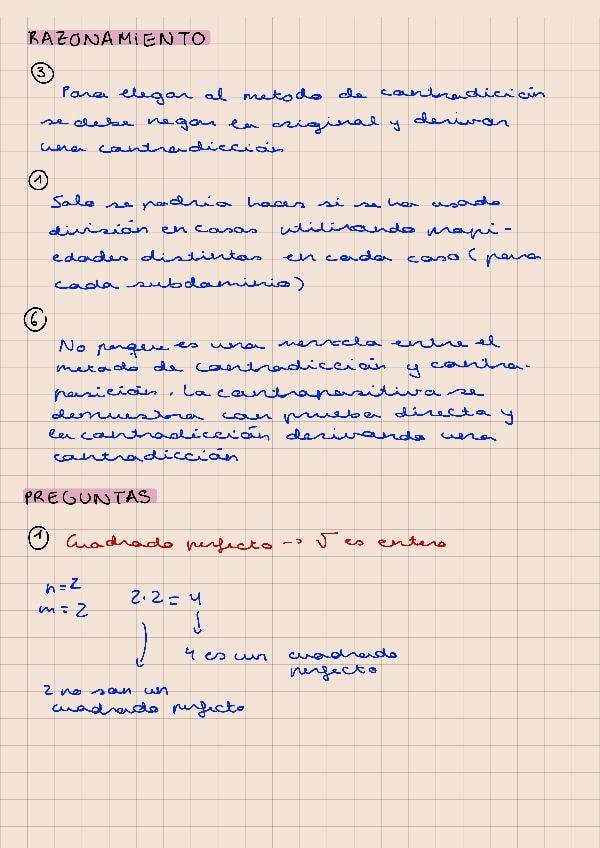 RAZONAMIENTO
③
Para llegar al metodo de contradicción
se debe negar la original y derivar
una contradicción
①
Solo se podria hacer si se ha usado
división en casos utilizando propi-
edades distintas en cada caso (para
cada subdominio)
⑥
No porque es una mezcla entre el
metodo de contradicción y contra-
posición. La contrapositiva se
demuestra con prueba directa y
la contradicción derivando una
contradicción
PREGUNTAS
① Cuadrado perfecto -> √ es entero
n=2
m=2 2·2=4
4 es un cuadrado
perfecto
2 no son un
cuadrado perfecto